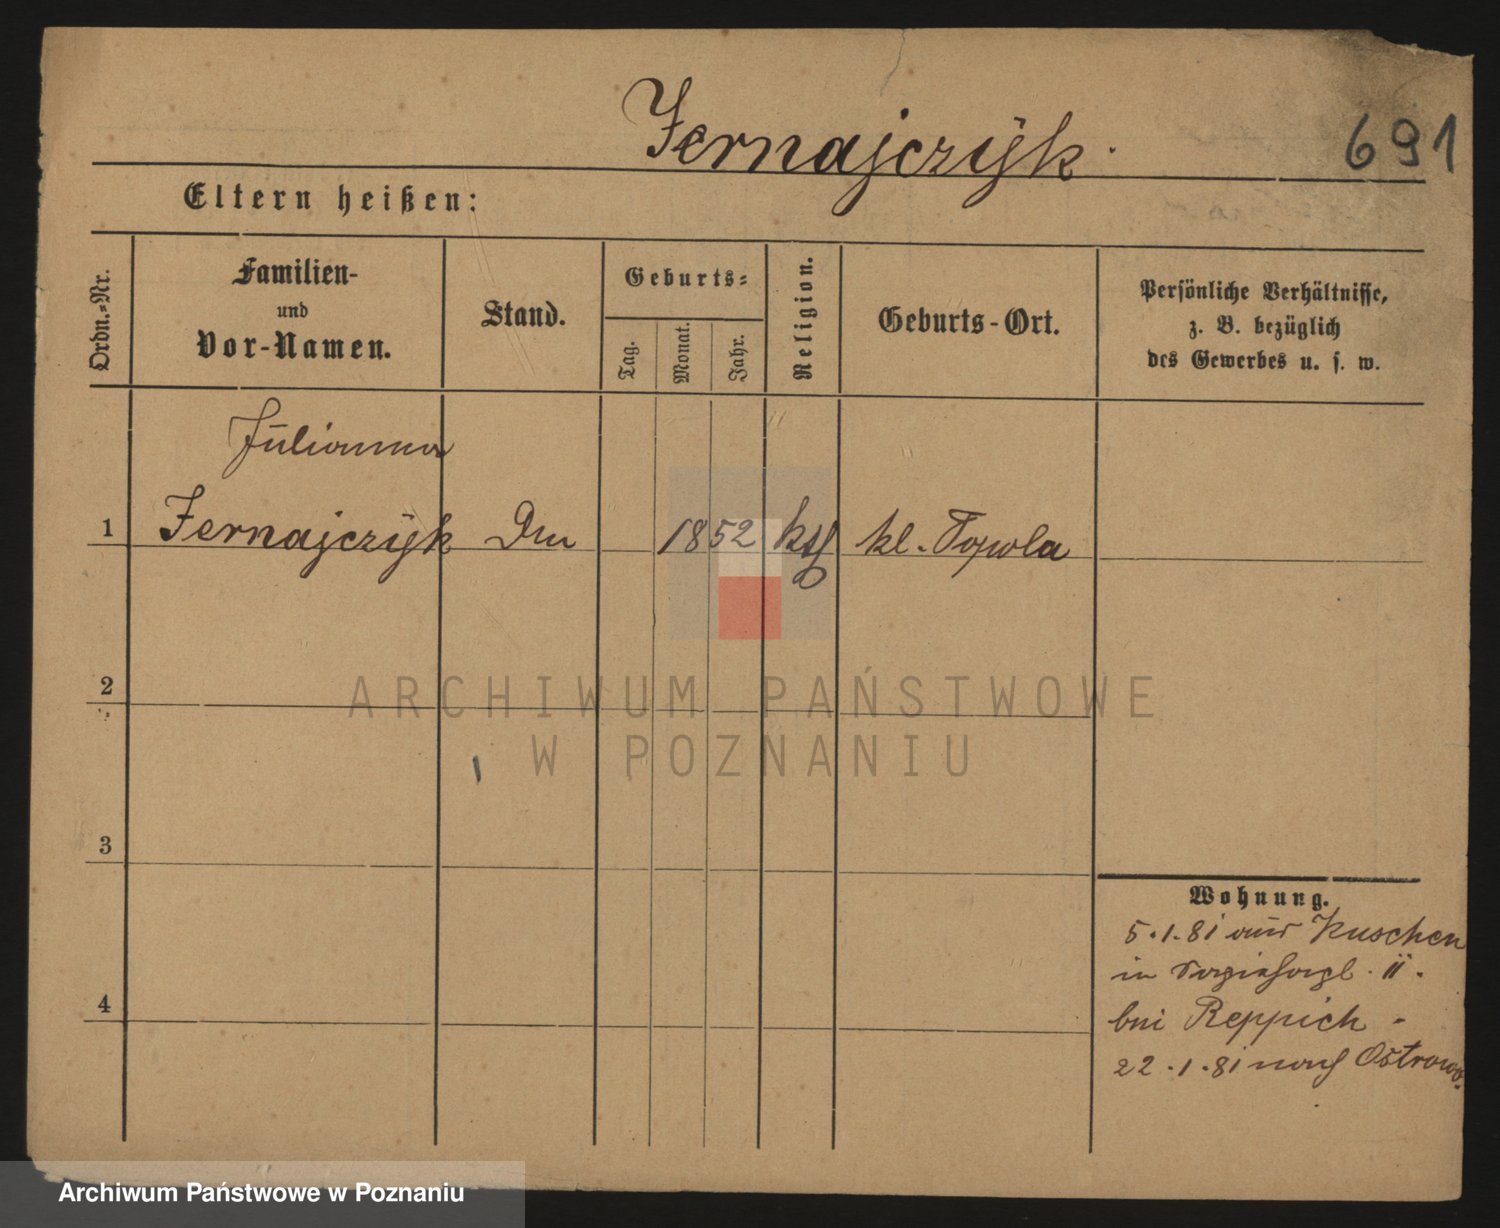 Jernajczÿk.
691
Eltern heißen:
Ordn.-Nr.
Familien-
und
Vor-Namen.
Stand.
Geburts-
Tag.
Monat.
Jahr.
Religion.
Geburts-Ort.
Persönliche Verhältnisse,
z. B. bezüglich
des Gewerbes u. s. w.
Julianna
1 Jernajczÿk 1852 kth kl. Topola
2
3
4
Wohnung.
5.1.81 aus Kuschen
in II.
bei Reppich -
22.1.81 nach Ostrowo.
ARCHIWUM PAŃSTWOWE
W POZNANIU
Archiwum Państwowe w Poznaniu